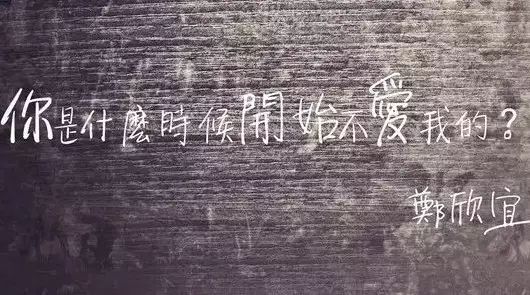 你是什麼時候開始不愛我的？
鄭欣宜